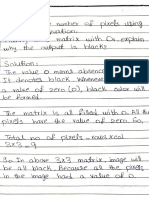 number of pixels using
matrix with 0s explain
why the output is black.
Solution:
The value 0 means absence
It denotes black. Whenever
a value of zero (0), black color will
be formed
The matrix is all filled with 0. All the
pixels have the value of zero so,
Total no of pixels = row x col
3x3 = 9
So In above 3x3 matrix image will
be all black Because all the pixels
in the image had a value of 0.